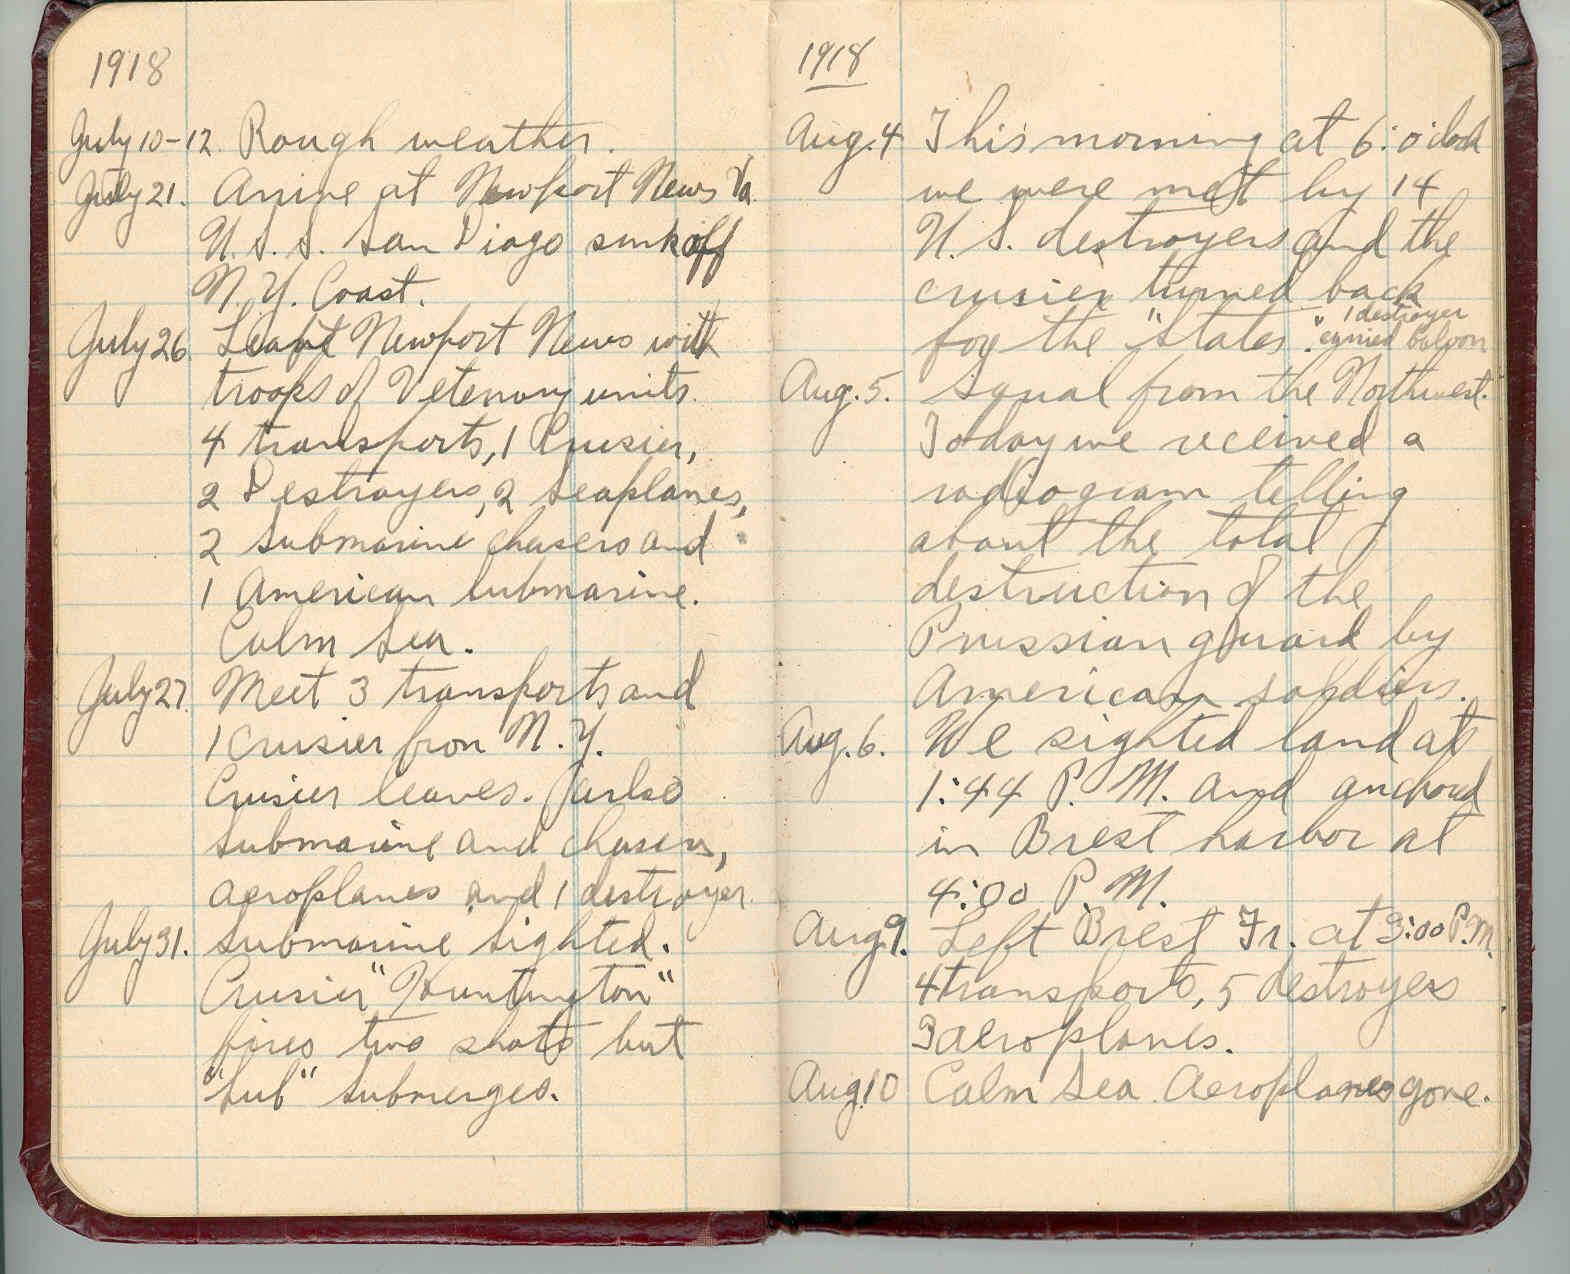 1918
July 10-12. Rough weather.
July 21. Arrive at Newport News Va.
U.S.S. San Diago sunk off
N.Y. Coast.
July 26 Leapt Newport News with
troops of Vetenary units.
4 transports, 1 Crusier,
2 Destroyers, 2 Seaplanes,
2 Submarine chasers and
1 American Submarine.
Calm Sea.
July 27. Meet 3 transports and
1 crusier fron N.Y.
Crusier leaves. Also
Submarine and chasers,
aeroplanes and 1 destroyer.
July 31. Submarine Sighted.
Crusier "Huntington"
fires two shots but
"Sub" Submerges.
1918
Aug. 4 This morning at 6:o'clock
we were met by 14
U.S. destroyers and the
crusier turned back
for the "States". 1 destroyer
carried baloon
Aug. 5. Squal from the Northwest.
Today we received a
radiogram telling
about the total
destruction of the
Prussian guard by
American soldiers.
Aug. 6. We sighted land at
1:44 P.M. and anchord
in Brest harbor at
4:00 P.M.
Aug 9. Left Brest Fr. at 3:00 P.M.
4 transports, 5 destroyers
3 aeroplanes.
Aug. 10 Calm Sea. Aeroplanes gone.